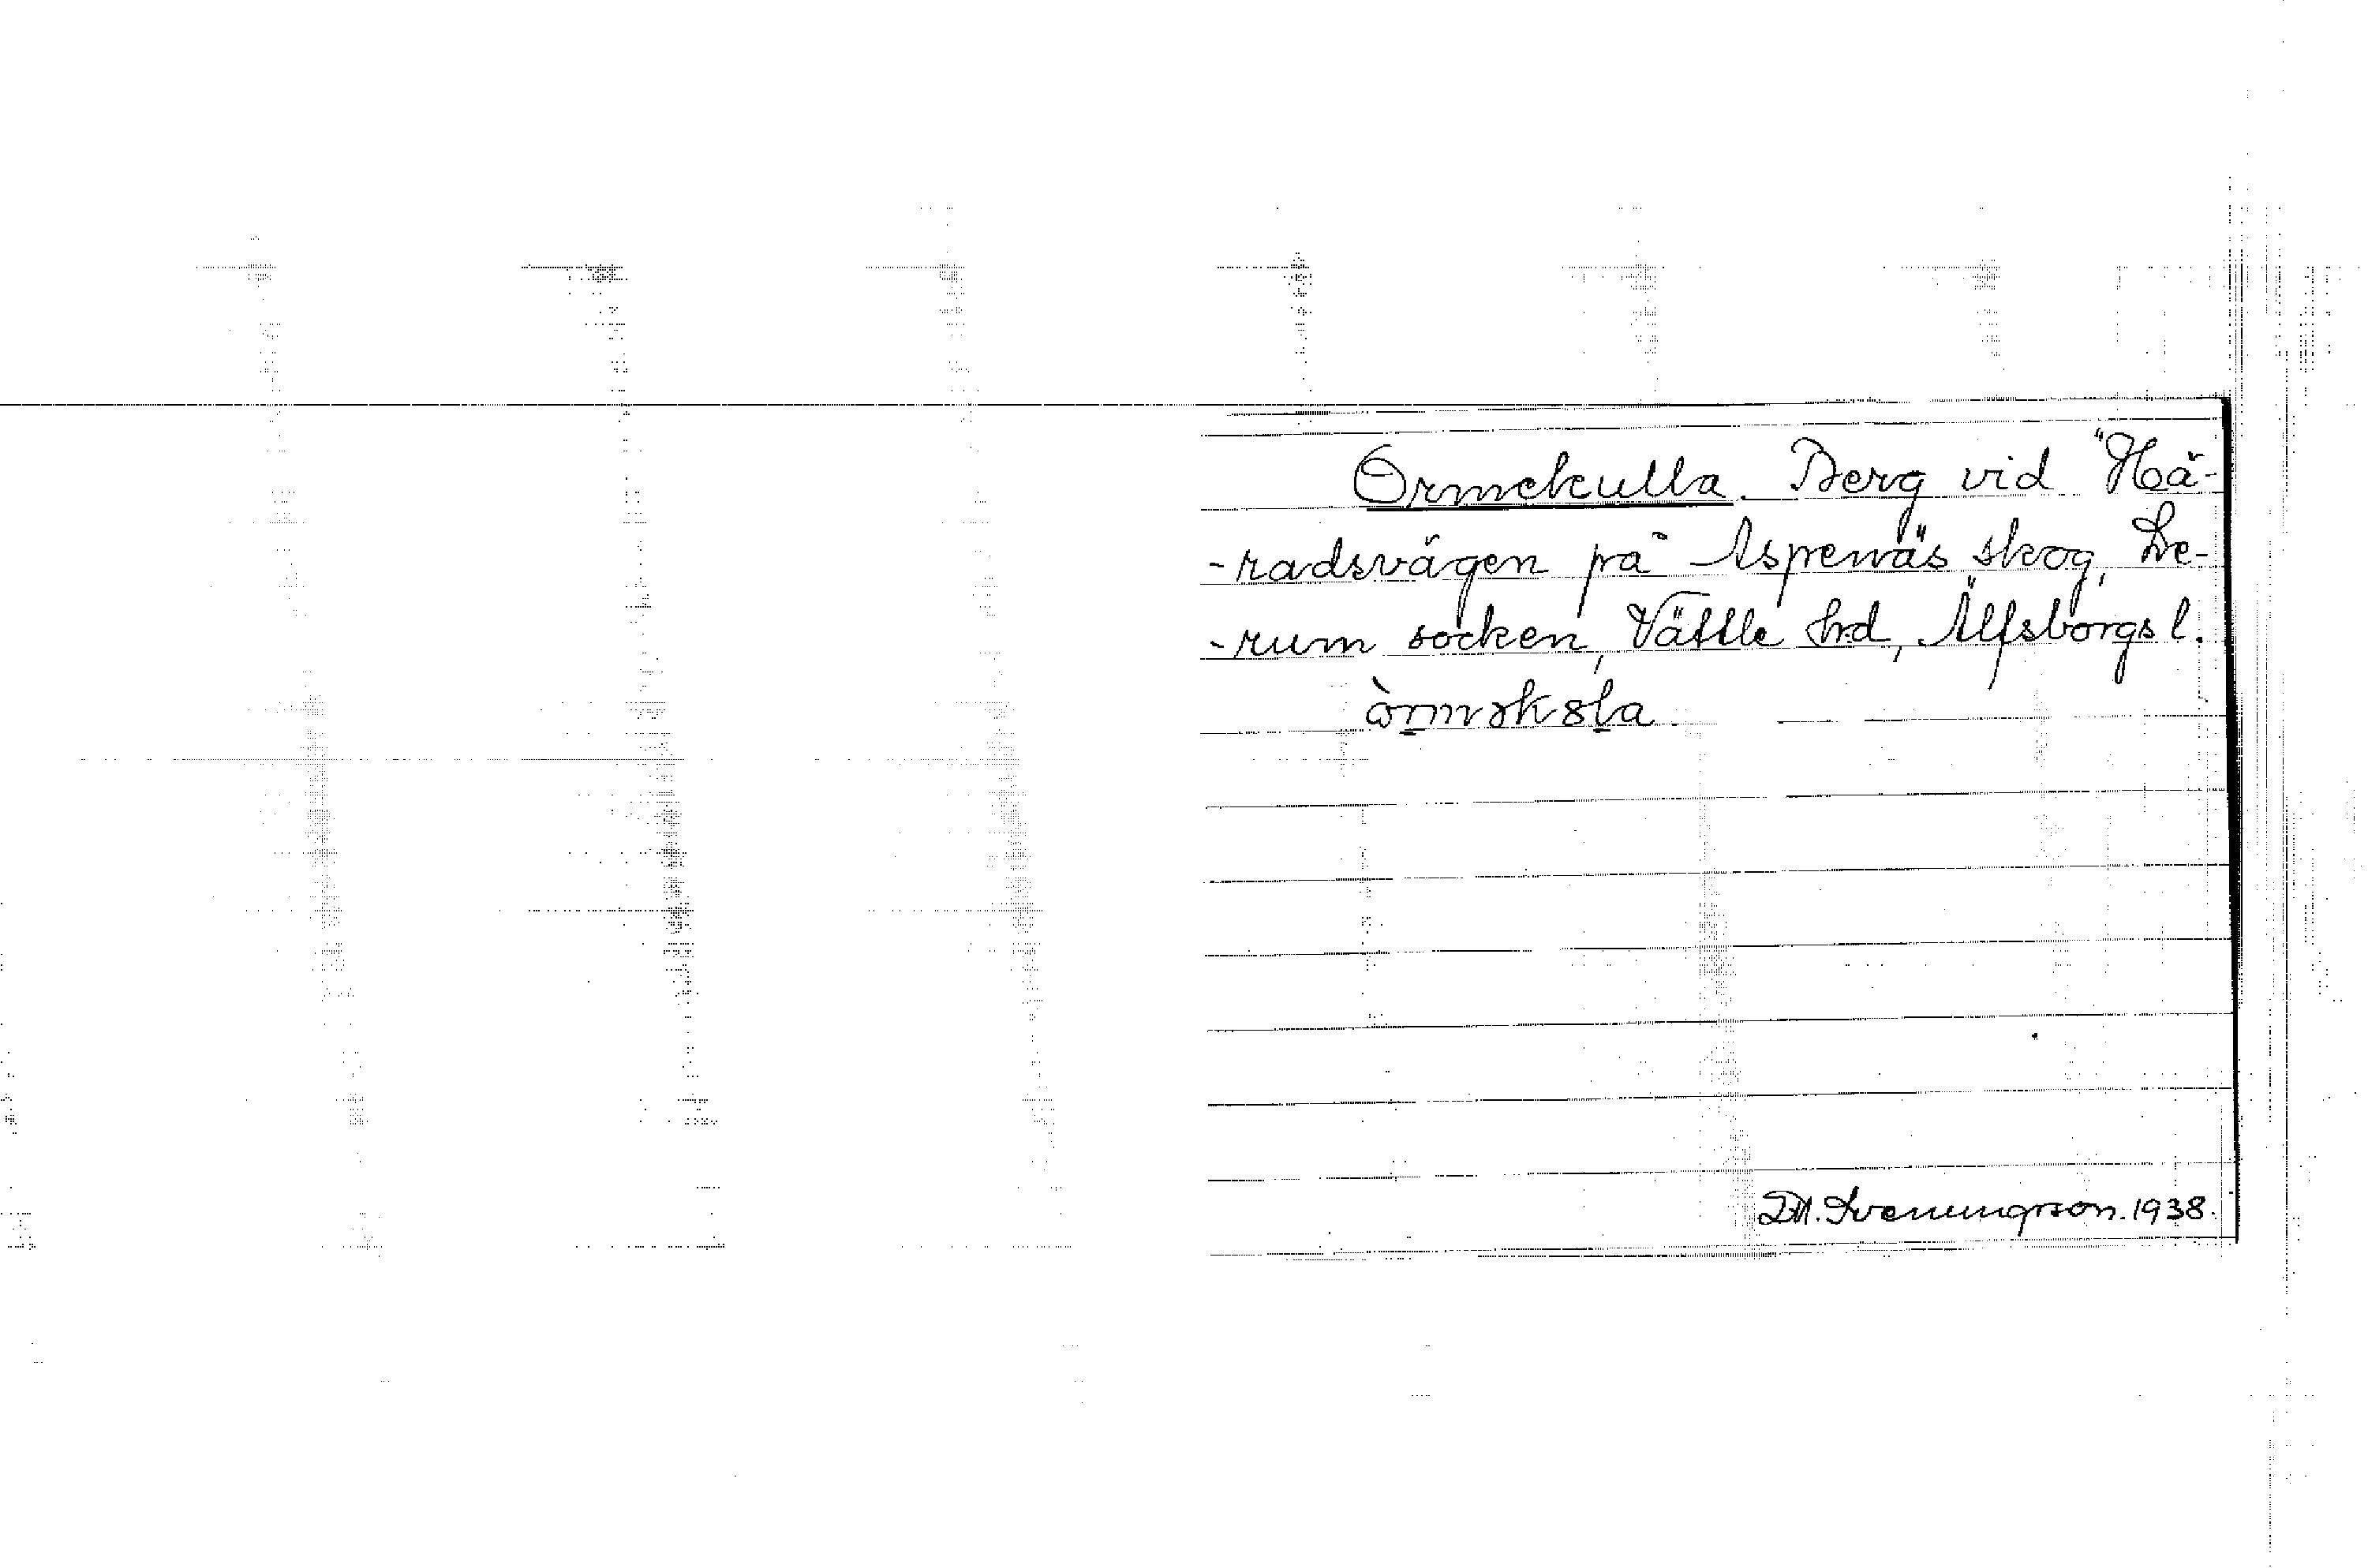 Ormekulla. Berg vid "Hä-
-radsvägen på Aspenäs skog, Le-
-rum socken, Vättle hrd, Älfsborgs l.
òrməkɞla
D.M. Sveningsson. 1938.